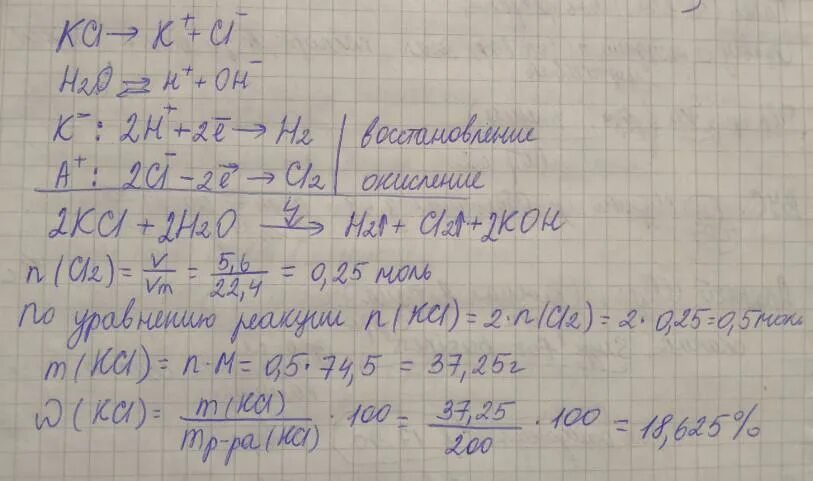 KCl → K⁺ + Cl⁻
H₂O ⇄ H⁺ + OH⁻
K⁻: 2H⁺ + 2ē → H₂ | восстановление
A⁺: 2Cl⁻ - 2ē → Cl₂ | окисление
2KCl + 2H₂O → H₂↑ + Cl₂↑ + 2KOH
n(Cl₂) = V/Vm = 5,6/22,4 = 0,25 моль
По уравнению реакции n(KCl) = 2·n(Cl₂) = 2·0,25 = 0,5 моль
m(KCl) = n·M = 0,5·74,5 = 37,25г
ω(KCl) = m(KCl)/mр-ра(KCl) · 100 = 37,25/200 · 100 = 18,625%